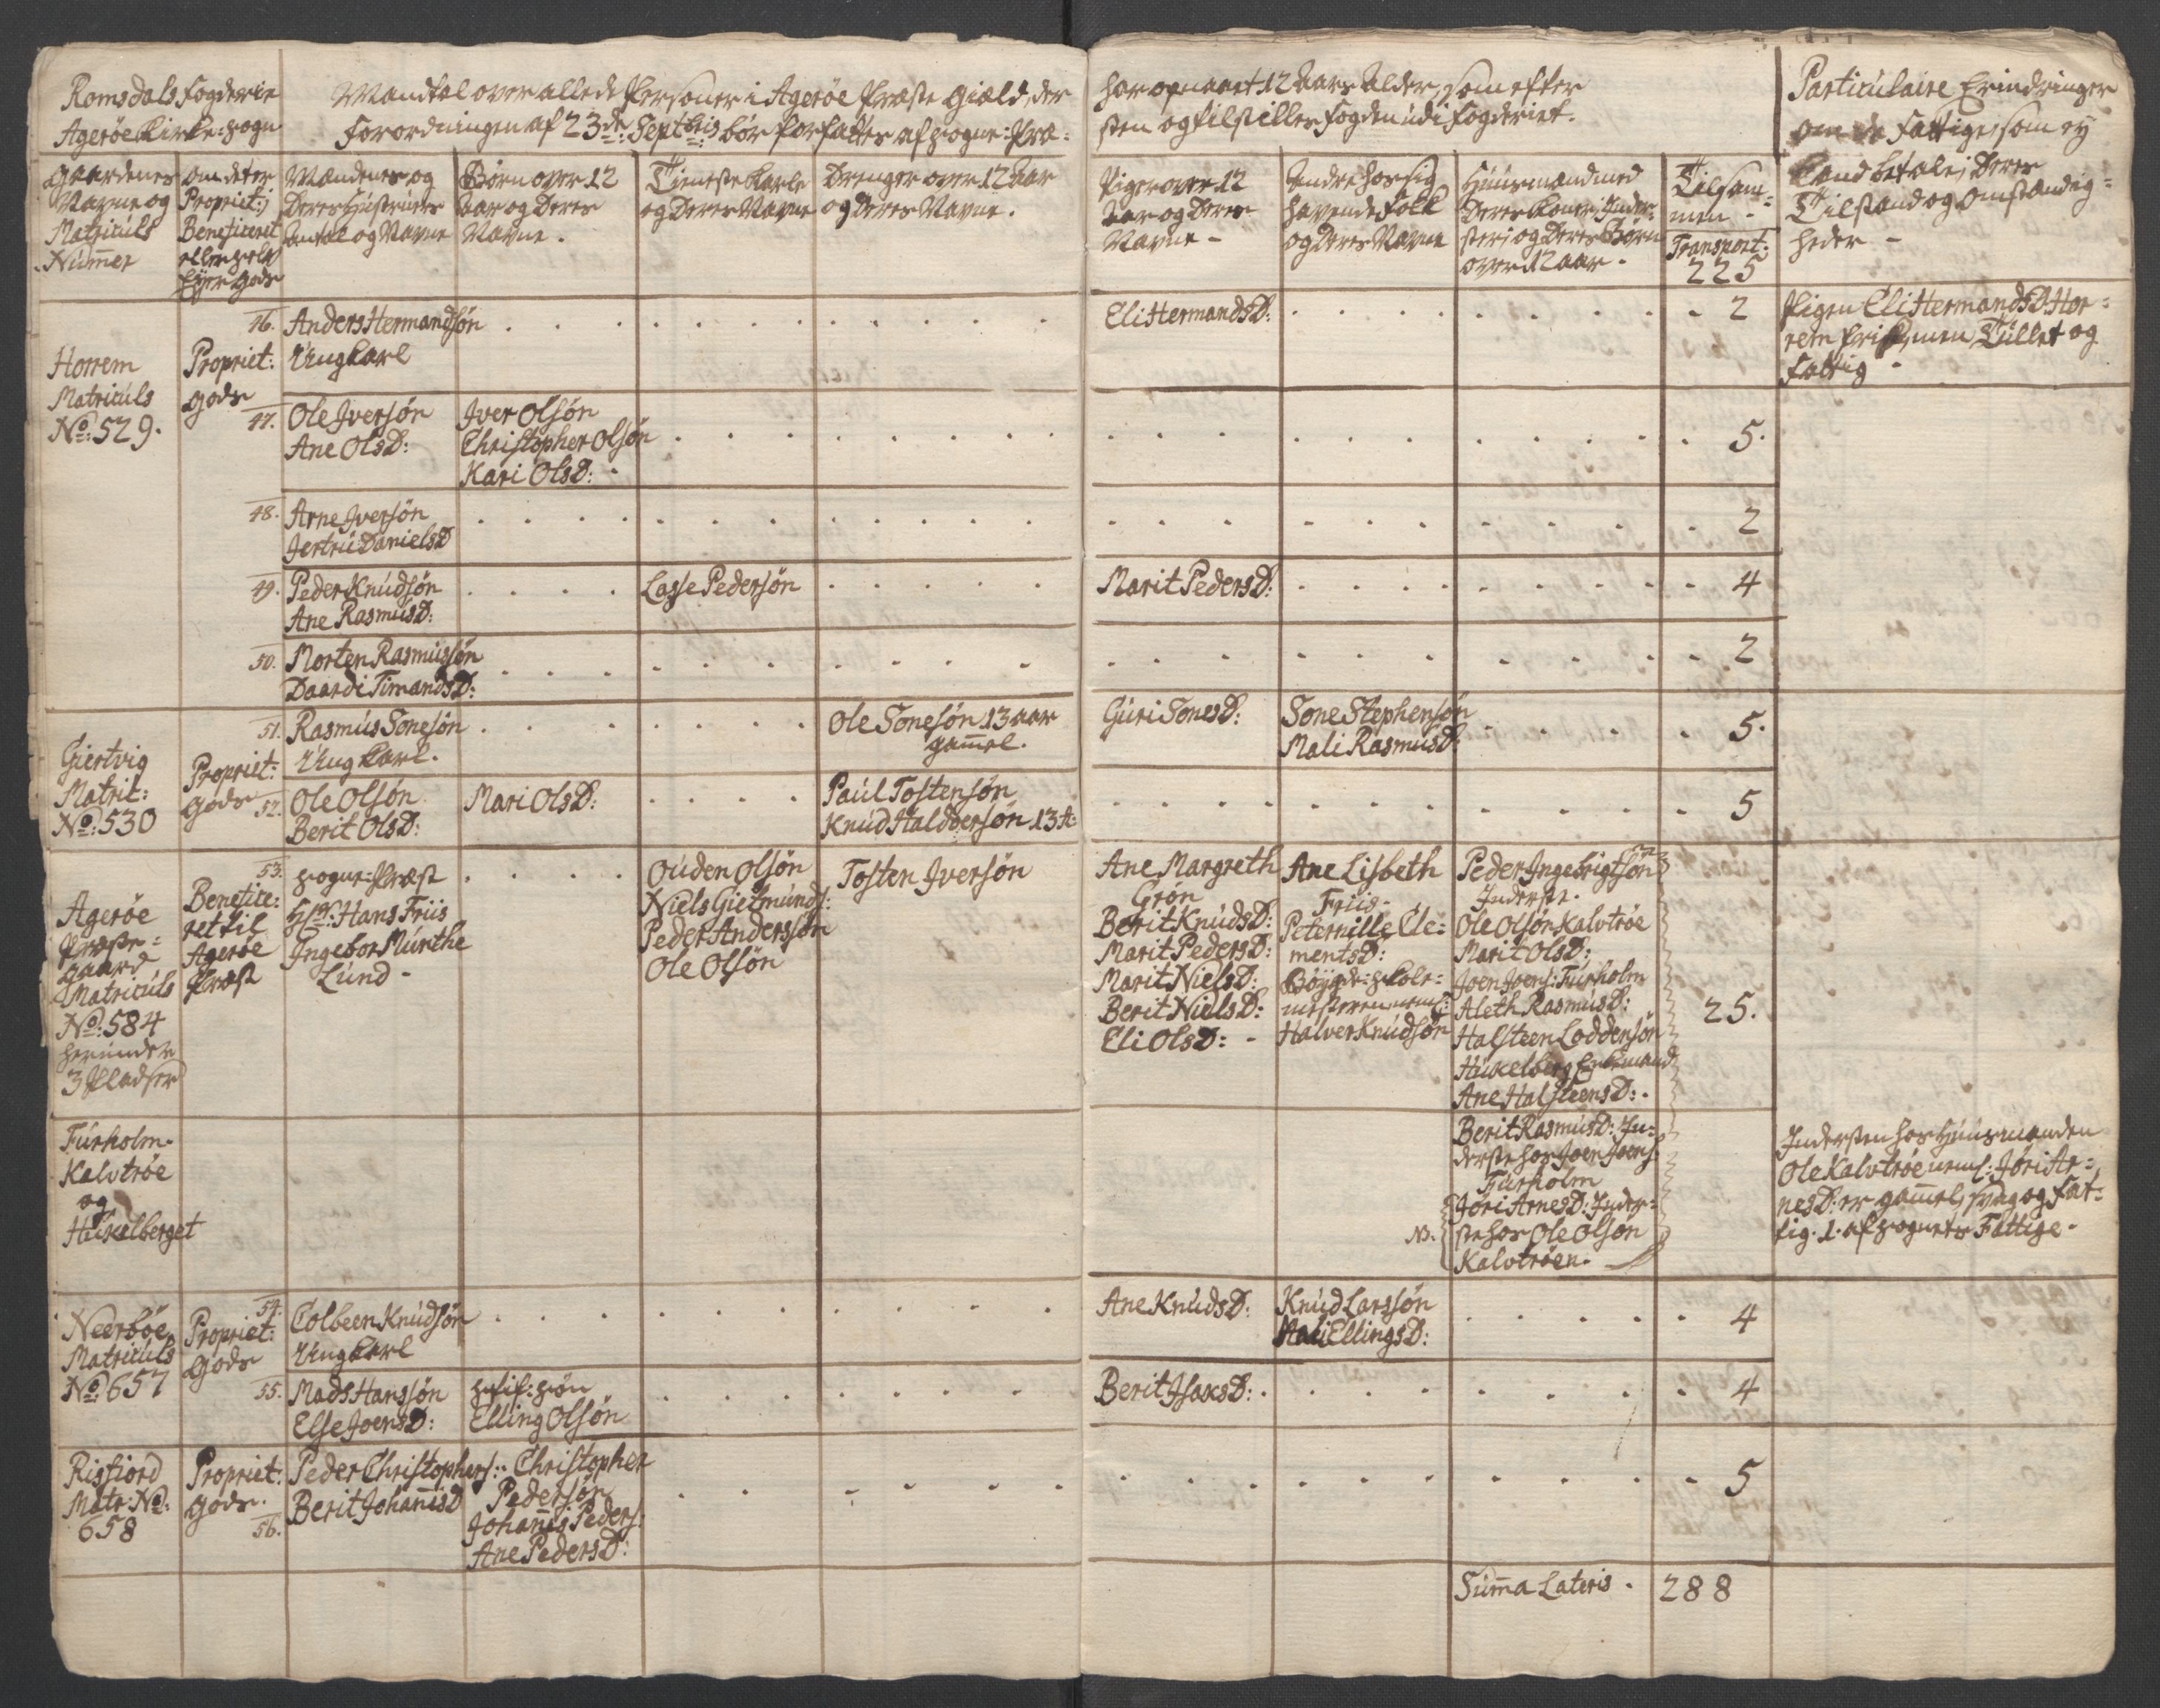 Romsdals Fogderie
Agerøe Kirke-sogn
Mandtal over alle de Personer i Agerøe Præste Giæld, der
Forordningen af 23de Septbris bør forfattes af Sogne-Præ-
har opnaaet 12 Aars Alder, som efter
sten og tilstilles Fogden udi Fogderiet.
Particulaire Erindringer
om de Fattige, som ey
kand betale, Deres
Tilstand og Omstændig-
heder -
Gaardenes
Navne og
Matriculs
Nummer
om det er
Propriet:
Beneficeret
eller selv
Eyer Gods
Mændenes og
Deres Hustruers
Antal og Navne
Børn over 12
Aar og Deres
Navne.
Tieneste Karle
og Deres Navne
Drenger over 12 Aar
og Deres Navne.
Piger over 12
Aar og Deres
Navne -
Andre hos sig
havende Folk
og Deres Navne
Huusmænd med
Deres Koner, Inder-
ster og Deres Børn
over 12 aar.
Tilsam-
men -
Transport:
225
Horrem
Matriculs
No: 529.
Propriet:
Gods
46. Anders Hermandsøn
Ung Karl
Eli HermandsD:
2
Pigen Eli HermandsD: Hor-
rem frisk, men Tullet og
Fattig -
47. Ole Iversøn
Ane OlsD:
Iver Olsøn
Christopher Olsøn
Kari OlsD:
5.
48. Arne Iversøn
Jertru DanielsD
2
49. Peder Knudsøn
Ane RasmusD:
Lasse Pedersøn
Marit PedersD:
4
50. Morten Rasmussøn
Daardi TimandsD:
2
Giertvig
Matric:
No: 530
Propriet:
Gods
51. Rasmus Sonesøn
Ung Karl.
Ole Sonesøn 13 aar
gammel.
Guri SonesD:
Sone Stephensøn
Mali RasmusD:
5.
52. Ole Olsøn
Berit OlsD:
Mari OlsD:
Paul Tostensøn
Knud Haldorsøn 13 A:
5
Agerøe
Præste-
gaard
Matriculs
No: 584
herunder
3 Pladser
Benefice-
ret til
Agerøe
Præst
53. Sogne-Præst
Hr: Hans Friis
Ingebor Munthe
Lund -
Ouden Olsøn
Niels Gietmunds:
Peder Anderssøn
Ole Olsøn
Tosten Iversøn
Ane Margreth
Grøn
Berit KnudsD:
Marit PedersD:
Marit NielsD:
Berit NielsD:
Eli OlsD: -
Ane Lisbeth
Friis -
Peternille Cle-
mentsD:
Bøygde-skole-
mesteren neml:
Halver Knudsøn
Peder Ingebrigtsøn
Inderste.
Ole Olsøn Kalvtrøe
Marit OlsD:
Joen Joens: Furholm
Aleth RasmusD:
Halsteen Loddensøn
Hukelberg Enkemand
Ane HalsteensD: -
25.
Furholm
Kalvtrøe
og
Hukelberget
Berit RasmusD: In-
derste hos Joen Joens:
Furholm
NB. Jøri ArnesD: Inder-
ste hos Ole Olsøn
Kalvtrøen.
Indersten hos Huusmanden
Ole Kalvtrøe neml: Jøri Ar-
nesD: er gammel, svag og Fat-
tig. 1. af Sognets Fattige.
Neerbøe
Matriculs
No: 657
Propriet:
Gods
54. Colbeen Knudsøn
Ung Karl
Ane KnudsD:
Knud Larssøn
Mali EllingsD:
4
55. Mads Hanssøn
Else JoensD:
Stif-søn
Elling Olsøn
Berit IsaksD:
4
Risfiord
Matr: No:
658
Propriet:
Gods.
56.
Peder Christophers:
Berit JohannisD
Christopher
Pedersøn
Johannis Peders:
Ane PedersD:
5
Summa Lateris . 288